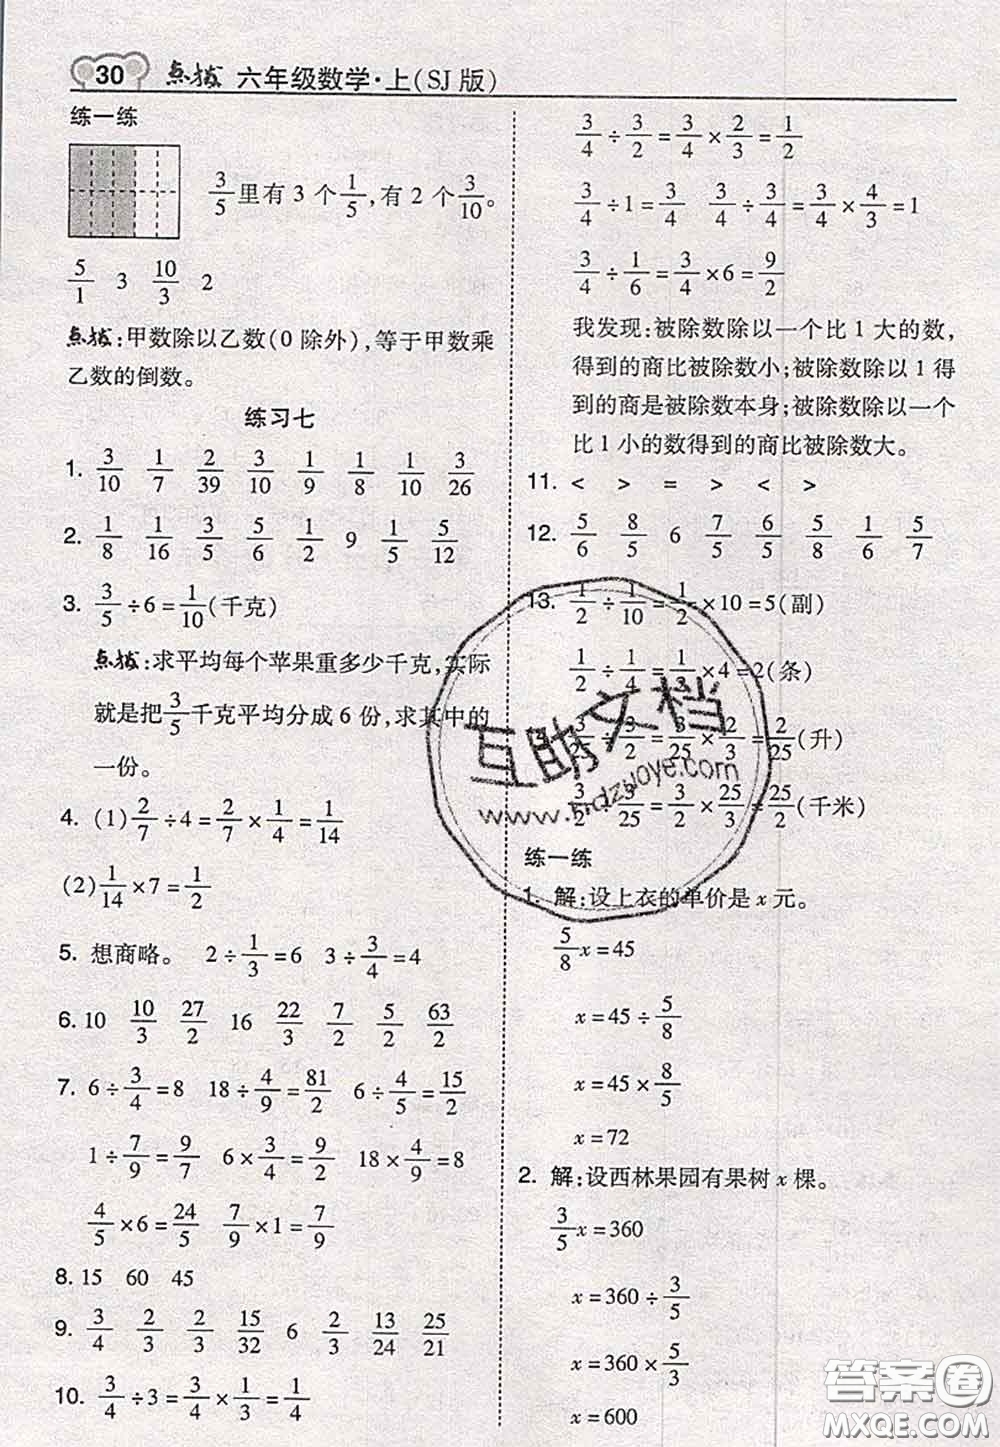 30 点拨 六年级数学·上(SJ版)
练一练
3/5里有3个1/5,有2个3/10。
5/1 3 10/3 2
点拨:甲数除以乙数(0除外),等于甲数乘
乙数的倒数。
练习七
1. 3/10 1/7 2/39 3/10 1/9 1/8 1/10 3/26
2. 1/8 1/16 3/5 5/6 1/2 9 1/5 5/12
3. 3/5÷6=1/10(千克)
点拨:求平均每个苹果重多少千克,实际
就是把3/5千克平均分成6份,求其中的
一份。
4. (1)2/7÷4=2/7×1/4=1/14
(2)1/14×7=1/2
5. 想商略。 2÷1/3=6 3÷3/4=4
6. 10 10/3 27/2 16 22/3 7/2 5/2 63/2
7. 6÷3/4=8 18÷4/9=81/2 6÷4/5=15/2
1÷7/9=9/7 6×3/4=9/2 18×4/9=8
4/5×6=24/5 7/9×1=7/9
8. 15 60 45
9. 3/4 2/3 2/3 15/32 6 2/3 13/24 25/21
10. 3/4÷3=3/4×1/3=1/4
3/4÷3/2=3/4×2/3=1/2
3/4÷1=3/4 3/4÷3/4=3/4×4/3=1
3/4÷1/6=3/4×6=9/2
我发现:被除数除以一个比1大的数,
得到的商比被除数小;被除数除以1得
到的商是被除数本身;被除数除以一个
比1小的数得到的商比被除数大。
11. < > = > < >
12. 5/6 8/5 6 7/5 6/5 5/8 1/6 5/7
13. 1/2÷1/10=1/2×10=5(副)
1/2÷1/4=1/3×4=2(条)
3/25÷3/2=3/25×2/3=2/25(升)
3/2÷3/25=3/2×25/3=25/2(千米)
练一练
1. 解:设上衣的单价是x元。
5/8x=45
x=45÷5/8
x=45×8/5
x=72
2. 解:设西林果园有果树x棵。
3/5x=360
x=360÷3/5
x=360×5/3
x=600
互助文档
答案圈
MXQE.COM